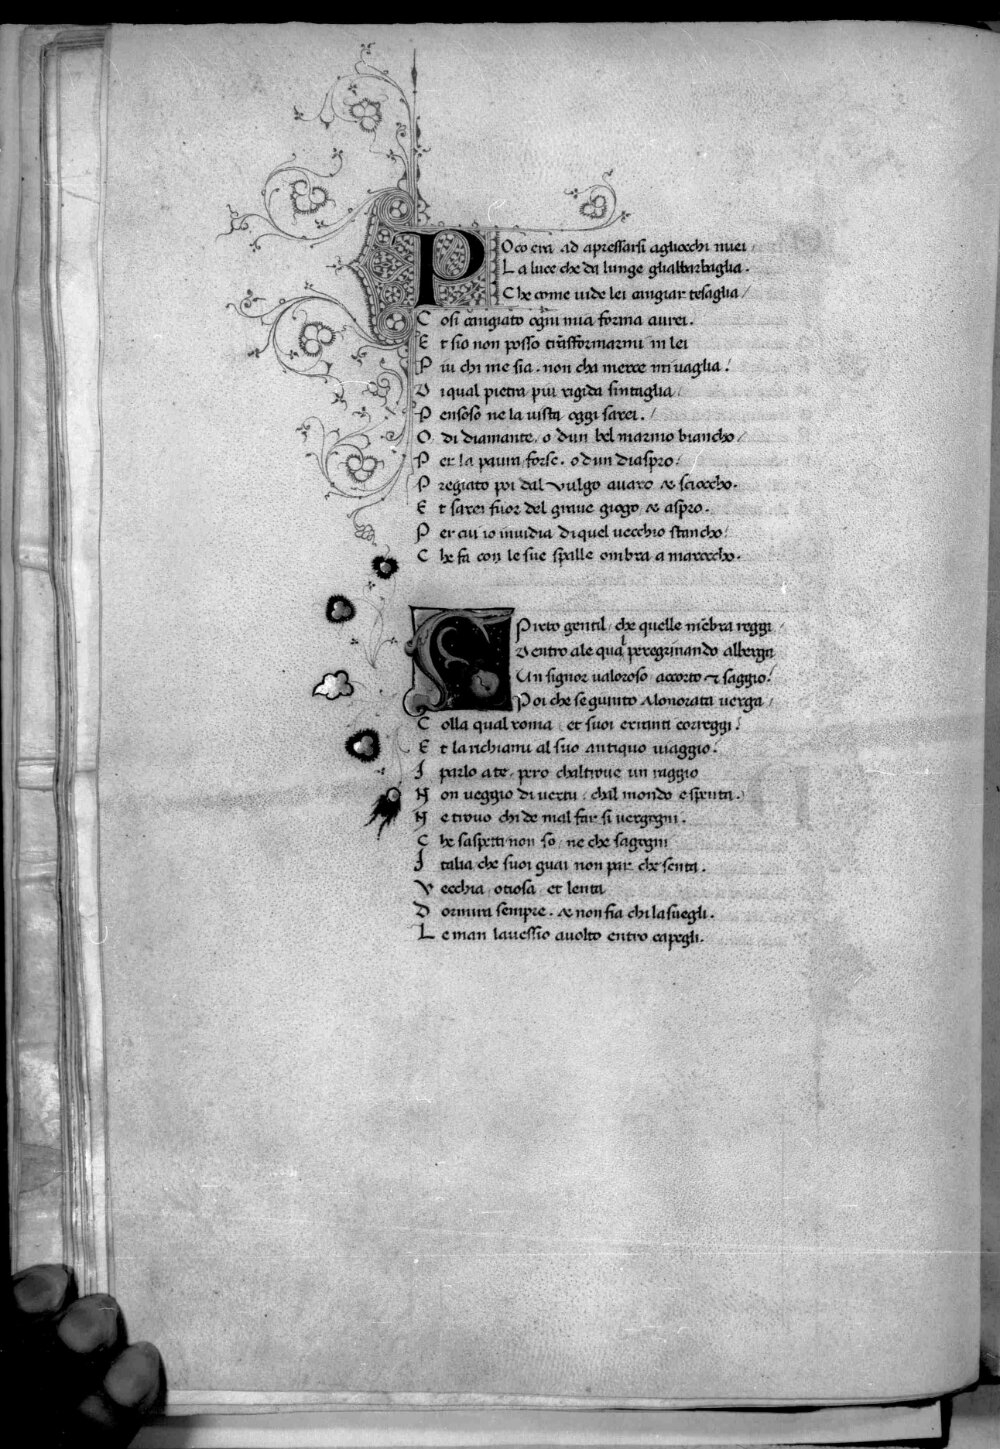 Poco era ad apressarsi agliocchi miei
La luce che da lunge gliabbarbaglia.
Che come uide lei cangiar tesaglia
Cosi cangiato ogni mia forma aurei.
Et sio non posso trãsformarmi in lei
Piu chi me sia. non cha merce mi uaglia.
Di qual pietra piu rigida sintaglia
Pensoso ne la uista oggi sarei.
O di diamante. o dun bel marmo biancho
Per la paura forse. o dun diaspro.
Pregiato poi dal vulgo auaro & scioccho.
Et sarei fuor del graue giogo & aspro.
Per cui io inuidia di quel uecchio stancho
Che fa con le sue spalle ombra a maroccho.
Spirto gentil, che quelle mẽbra reggi
Dentro ale qual peregrinando alberga
Un signor ualoroso accorto et saggio.
Poi che se giunto alonorata uerga
Colla qual roma et suoi erranti correggi.
Et la richiami al suo antiquo uiaggio.
I parlo a te, pero chaltroue un raggio
Non ueggio di uertu, chal mondo e spenta.
Ne trouo chi de mal far si uergogni.
Che saspetti non so, ne che sagogni
Italia che suoi guai non par che senta.
Vecchia otiosa et lenta
Dormira sempre. & non fia chi la suegli.
Le man lauessio auolto entro capegli.